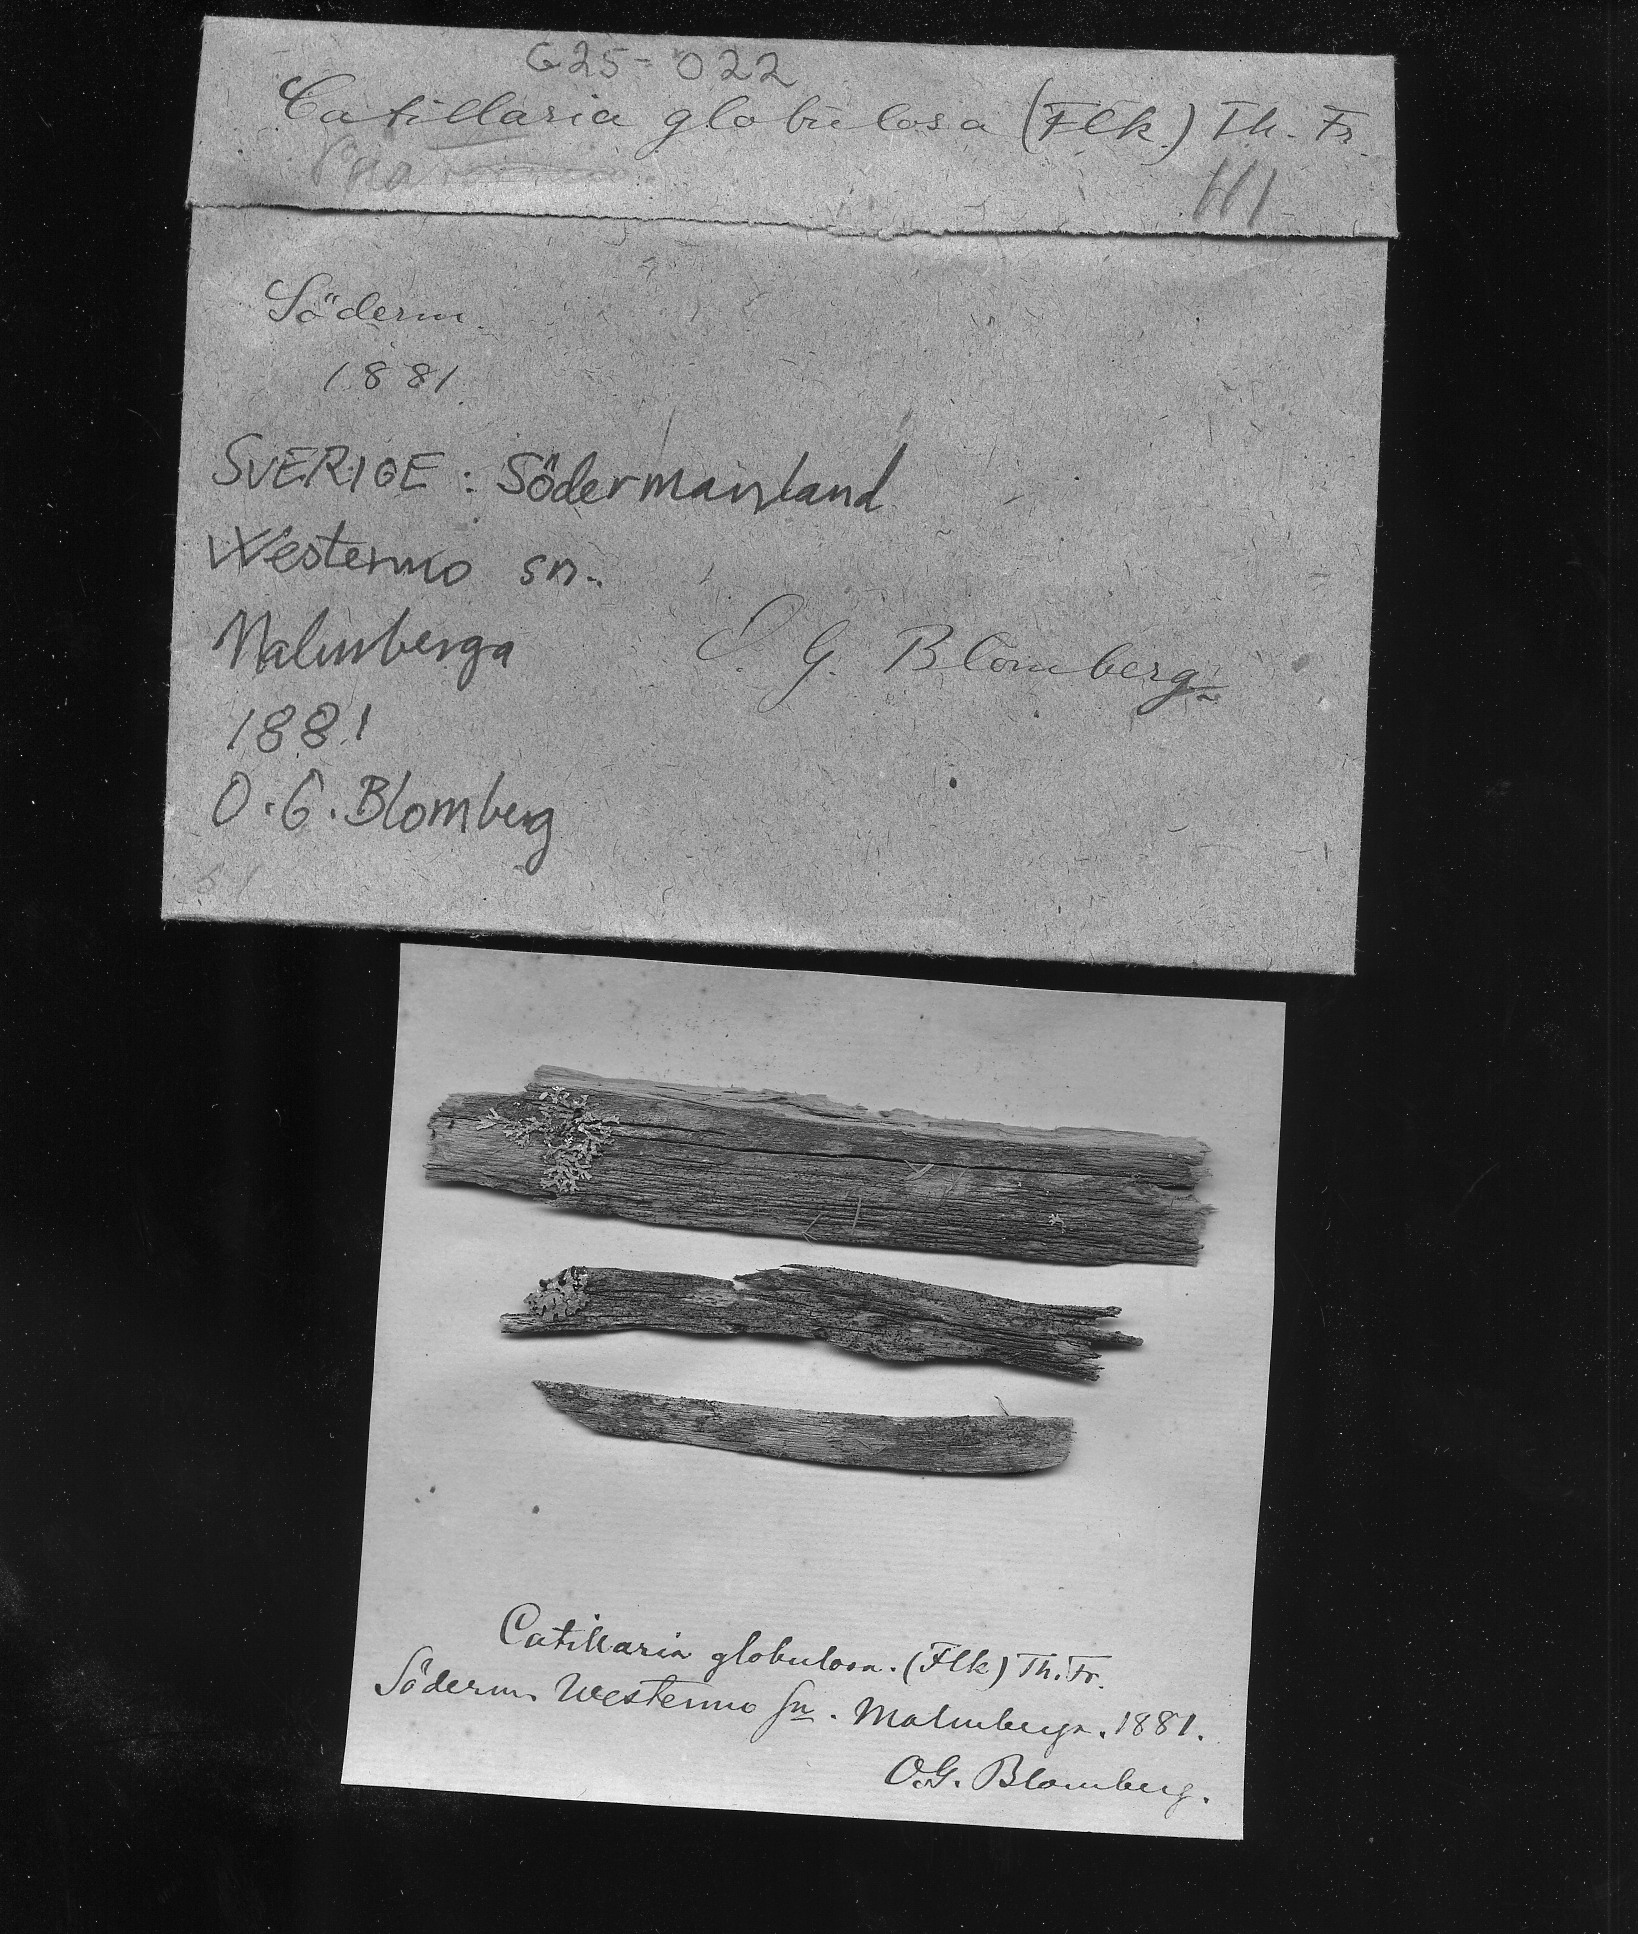 G25-022
Catillaria globulosa (Flk.) Th. Fr.
Söderm.
1881.
SVERIGE: Södermanland
Westermo sn.
Malmberga
O. G. Blomberg
1881
O. G. Blomberg
Catillaria globulosa. (Flk) Th. Fr.
Söderm. Westermo Sn. Malmberga. 1881.
O.G. Blomberg.